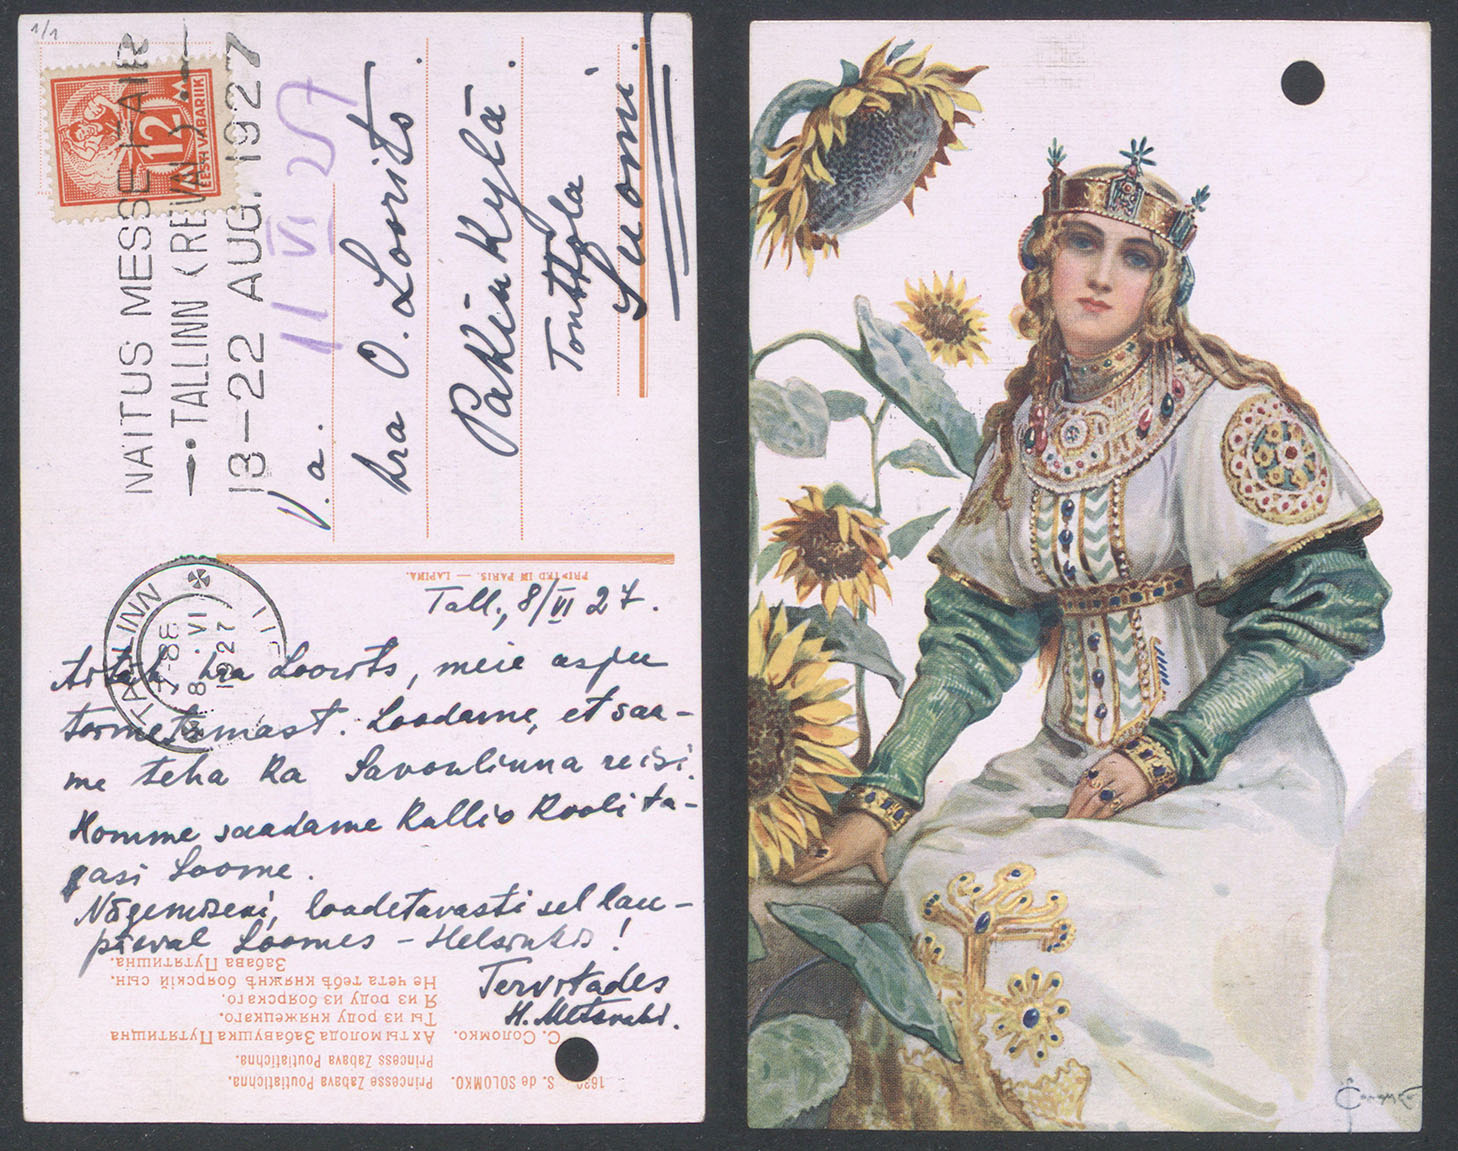 1/1
NAITUS MESSE FAIR
• TALLINN (REVAL)
13–22 AUG. 1927
12 M
EESTI VABARIIK
11 VI 27
V. a.
hra O. Loorits.
Pakinkylä.
Tonttola
Suomi.
TALLINN
7-8
8. VI
1927
PRINTED IN PARIS. — LAPINA.
Tall., 8/VI 27.
hra Loorits, meie asju
tormetamast. Loodame, et saa-
me teha ka Savonlinna reisi.
Homme saadame Kallio kooli ta-
gasi Soome.
Nägemiseni, loodetavasti sel lau-
päeval Soomes – Helsinkis!
Tervitades
H.
1630 S. de SOLOMKO. Princesse Zabava Poutiatichna.
Princess Zabava Poutiatichna.
С. Соломко. Ах ты молода Забавушка Путятишна
Ты из роду княжецкаго.
Я из роду боярскаго.
Не чета тебѣ княжнѣ боярскій сын.
Забава Путятишна.
С. Соломко